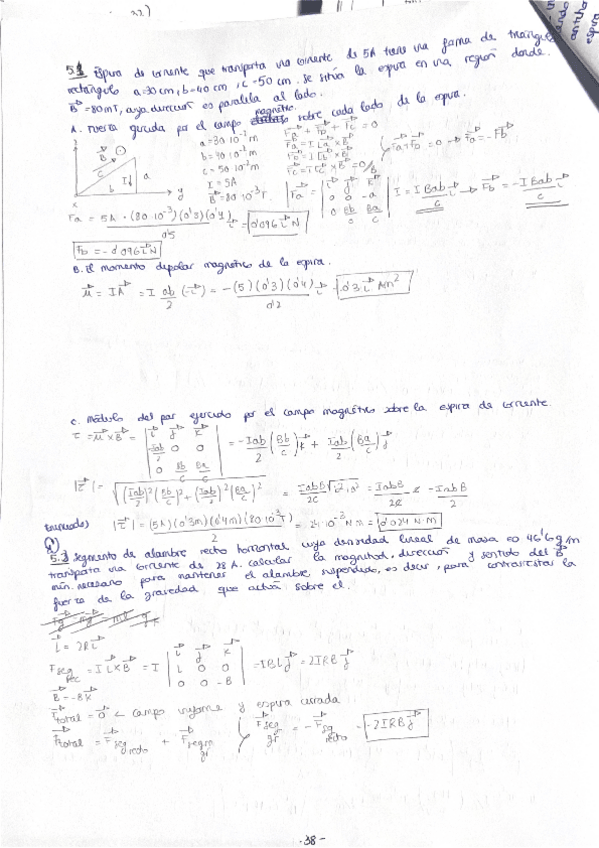 5.1 Espira de corriente que transporta una corriente de 5A tiene una forma de triángulo
rectángulo a=30 cm, b=40 cm, c=50 cm. Se sitúa la espira en una región donde
B = 80mT, cuya dirección es paralela al lado.
A. Fuerza ejercida por el campo magnético sobre cada lado de la espira.
a = 30·10⁻² m
b = 40·10⁻² m
c = 50·10⁻² m
I = 5A
B = 80·10⁻³ T.
Fa + Fb + Fc = 0
Fa = I La × B
Fb = I Lb × B
Fc = I Lc × B = 0
Fa + Fb = 0 → Fa = -Fb
|Fa = | i j k | 0 0 -a | 0 Bb/c Ba/c | I = I Bab/c i → Fb = -I Bab/c i
Fa = 5A·(80·10⁻³)(0'3)(0'4)/0'5 i = 0'096 i N
Fb = -0'096 i N
B. El momento dipolar magnético de la espira.
μ = IA = I ab/2 (-i) = -(5)(0'3)(0'4)/0'2 i = -0'3 i Am²
C. módulo del par ejercido por el campo magnético sobre la espira de corriente.
τ = μ × B = | i j k | -Iab/2 0 0 | 0 Bb/c Ba/c | = -Iab/2 (Bb/c) k + Iab/2 (Ba/c) j
|τ| = √((Iab/2)² (Bb/c)² + (Iab/2)² (Ba/c)²) = IabB√b²+a²/2c = IabB/2
|τ| = (5A)(0'3m)(0'4m)(80·10⁻³T)/2 = 24·10⁻³ N m = 0'024 N·m
segmento de alambre recto horizontal cuya densidad lineal de masa es 46'6 g/m
transporta una corriente de 28 A. calcular la magnitud, dirección y sentido del B
mín. necesario para mantener el alambre suspendido, es decir, para contrarrestar la
fuerza de la gravedad que actúa sobre él.
L = 2R i
F seg rec = I L × B = I | i j k | L 0 0 | 0 0 -B | = IBL j = 2IRB j
B = -B k
F total = 0 ← campo uniforme y espira cerrada
F total = F seg recto + F segm
F seg = -F seg recto = -2IRB j
-38-